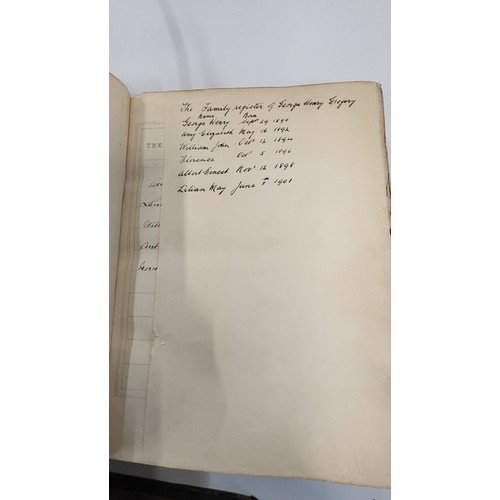 The Family register of George Henry Gregory
Name Born
George Henry Sept 29 1890
Amy Elizabeth May 16 1892
William John Oct 12 1894
Florence Oct 5 1896
Albert Ernest Nov 12 1898
Lilian May June 1st 1901
THE